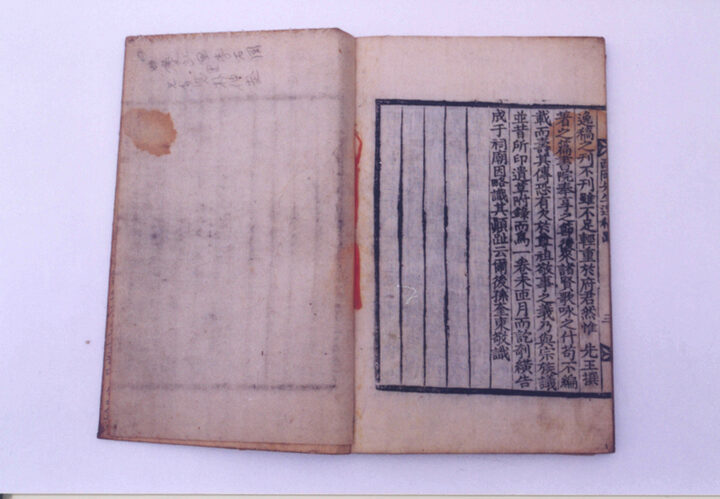 逸稿之刊不刊雖不足輕重於府君然惟 先王撰
著之稿書院奉享之節後來諸賢歌咏之什苟不編
載而壽其傳恐有欠於尊祖敬事之義乃與宗族議
並昔所印遺草附錄而爲一卷未匝月而訖告
成于祠廟因略識其顚趾云爾後孫奎東敬識
三